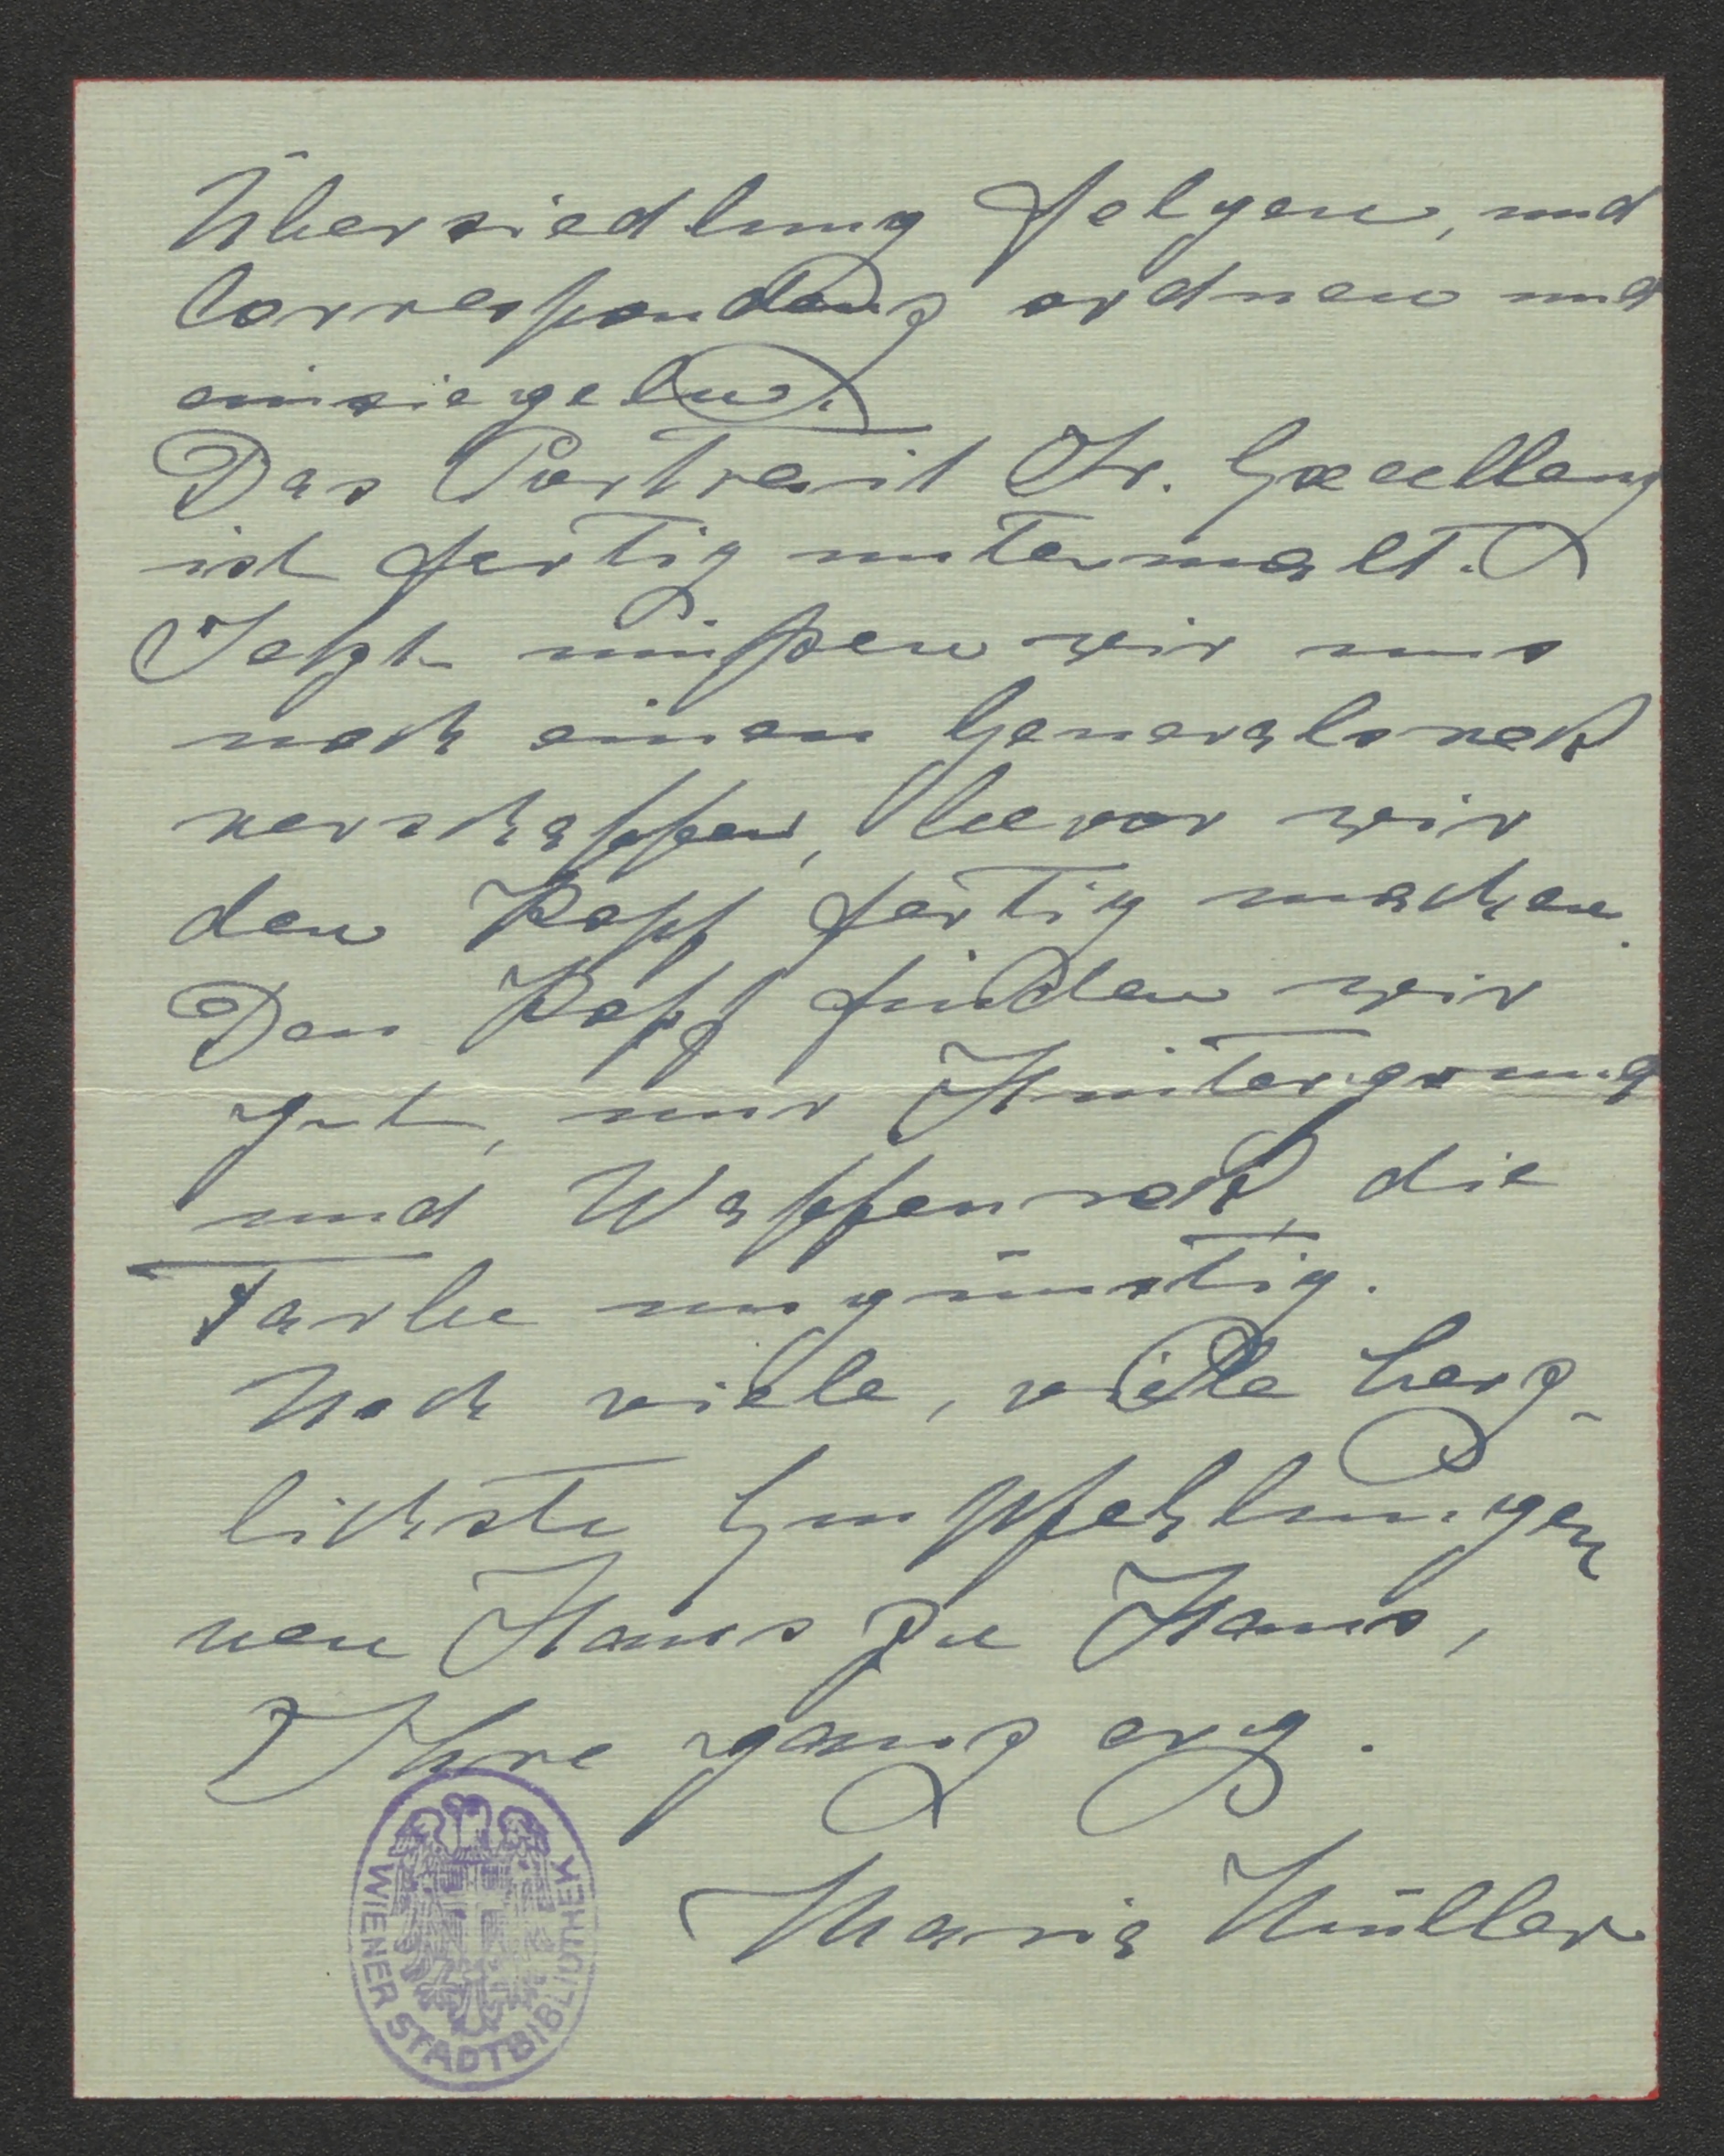 Übersiedlung folgen, und
Correspondenz ordnen und
einsiegeln.
Das Portrait Sr. Excellenz
ist fertig untermalt.
Jetzt müssen wir uns
noch einen Generalsrock
verschaffen, bevor wir
den Kopf fertig machen.
Den Kopf finden wir
gut, nur Hintergrund
und Waffenrock, die
Farbe ungünstig.
Noch viele, viele herz-
lichste Empfehlungen
von Haus zu Haus,
Ihre ganz erg.
Maria Müller
WIENER STADTBIBLIOTHEK